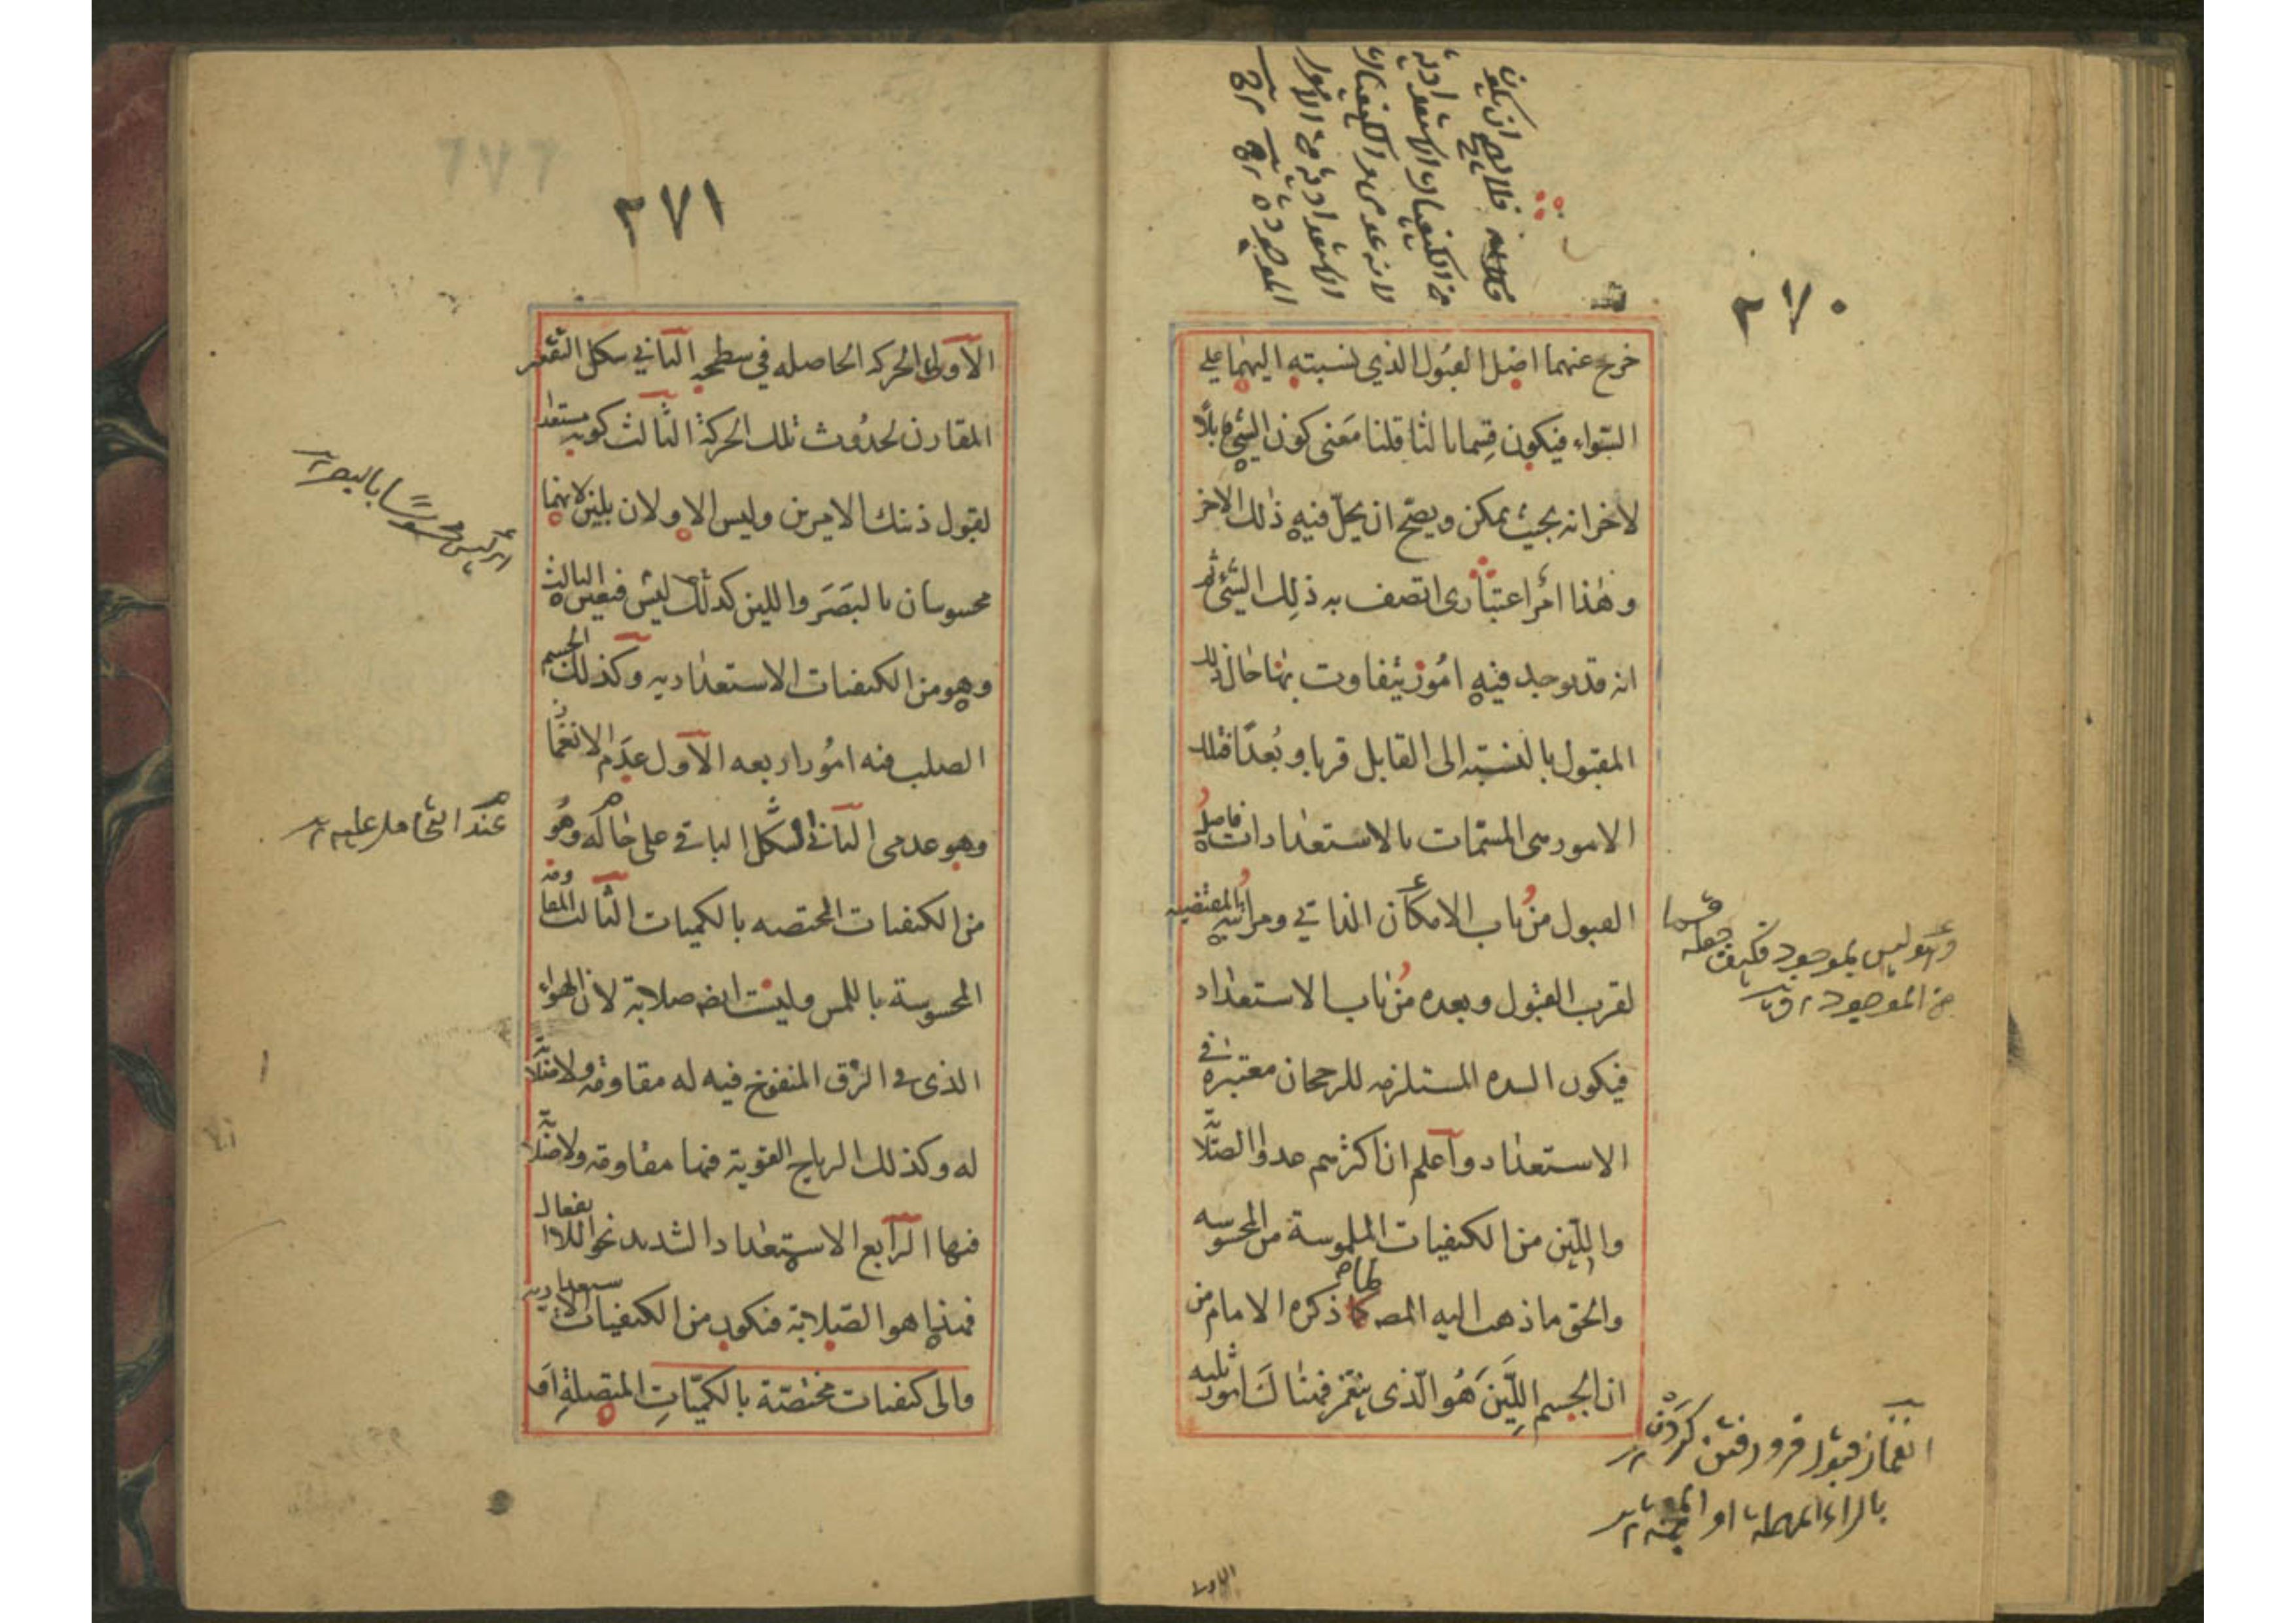 ٢٧٠
فلا يصح ان يكون
من الكيفيات الاستعدادية
لانه عدمى و الكيفيات
الاستعدادية من الامور
الموجودة
خرج عنهما اصل القبول الذي نسبته اليهما على
السواء فيكون قسما ثالثا قلنا معنى كون الشئ قابلاً
لاخر انه بحيث يمكن ويصح ان يحلّ فيه ذلك الاخر
وهذا امر اعتبارى اتصف به ذلك الشئ ثم
انه قد يوجد فيه امور يتفاوت بها حال ذلك
المقبول بالنسبة الى القابل قربا وبُعداً فتلك
الامور هى المسمات بالاستعدادات فاصل
القبول من باب الامكان الذاتي ومراتبه المقتضيه
لقرب القبول وبعده من باب الاستعداد
فيكون الشده المستلزمه للرجحان معتبرة في
الاستعداد واعلم ان اكثرهم عدوا الصلابة
واللين من الكيفيات الملموسة من المحسوسه
والحق ما ذهب اليه المص كما ذكره الامام من
ان الجسم اللّين هُو الّذى ينغمز فهناك امور ثلثه
وهو ليس بموجود فكيف جعله قسما
من الموجود
انغماز قبول فرو رفتن كردن
بالراء المهملة او المعجمة
الاول
٢٧١
الاول الحركه الحاصله في سطحه الثاني شكل التقعر
المقارن لحدوث تلك الحركة الثالث كونه مستعدا
لقبول ذينك الامرين وليس الاولان بلين لانهما
محسوسان بالبصر واللين كذلك ليس فتعين الثالث
وهو من الكيفيات الاستعداديه وكذلك الجسم
الصلب فيه امور اربعه الاول عدم الانغماز
وهو عدمى الثاني الشكل الباقي على حاله وهو
من الكيفيات المختصه بالكميات الثالث المقاومه
المحسوسة باللمس وليست ايضا صلابة لان الهواء
الذى في الزق المنفوخ فيه له مقاومة ولا صلابة
له وكذلك الرياح القوية فيها مقاومة ولا صلابة
فيها الرابع الاستعداد الشديد نحو اللاانفعال
فهذا هو الصلابة فيكون من الكيفيات الاستعداديه
والى كيفيات مختصّة بالكميّاتِ المتصلةِ او
اى ليس محسوسًا بالبصر
عند التحامل عليه